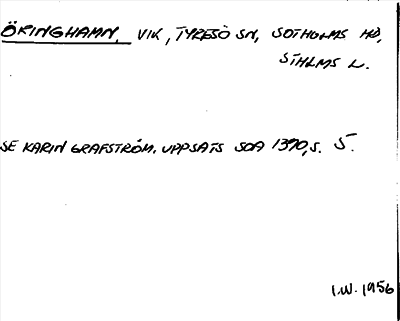 ÖRINGHAMN, VIK, TYRESÖ SN, SOTHOLMS HD,
STHLMS L.
SE KARIN GRAFSTRÖM. UPPSATS SOA 1390, S. 5.
I.W. 1956